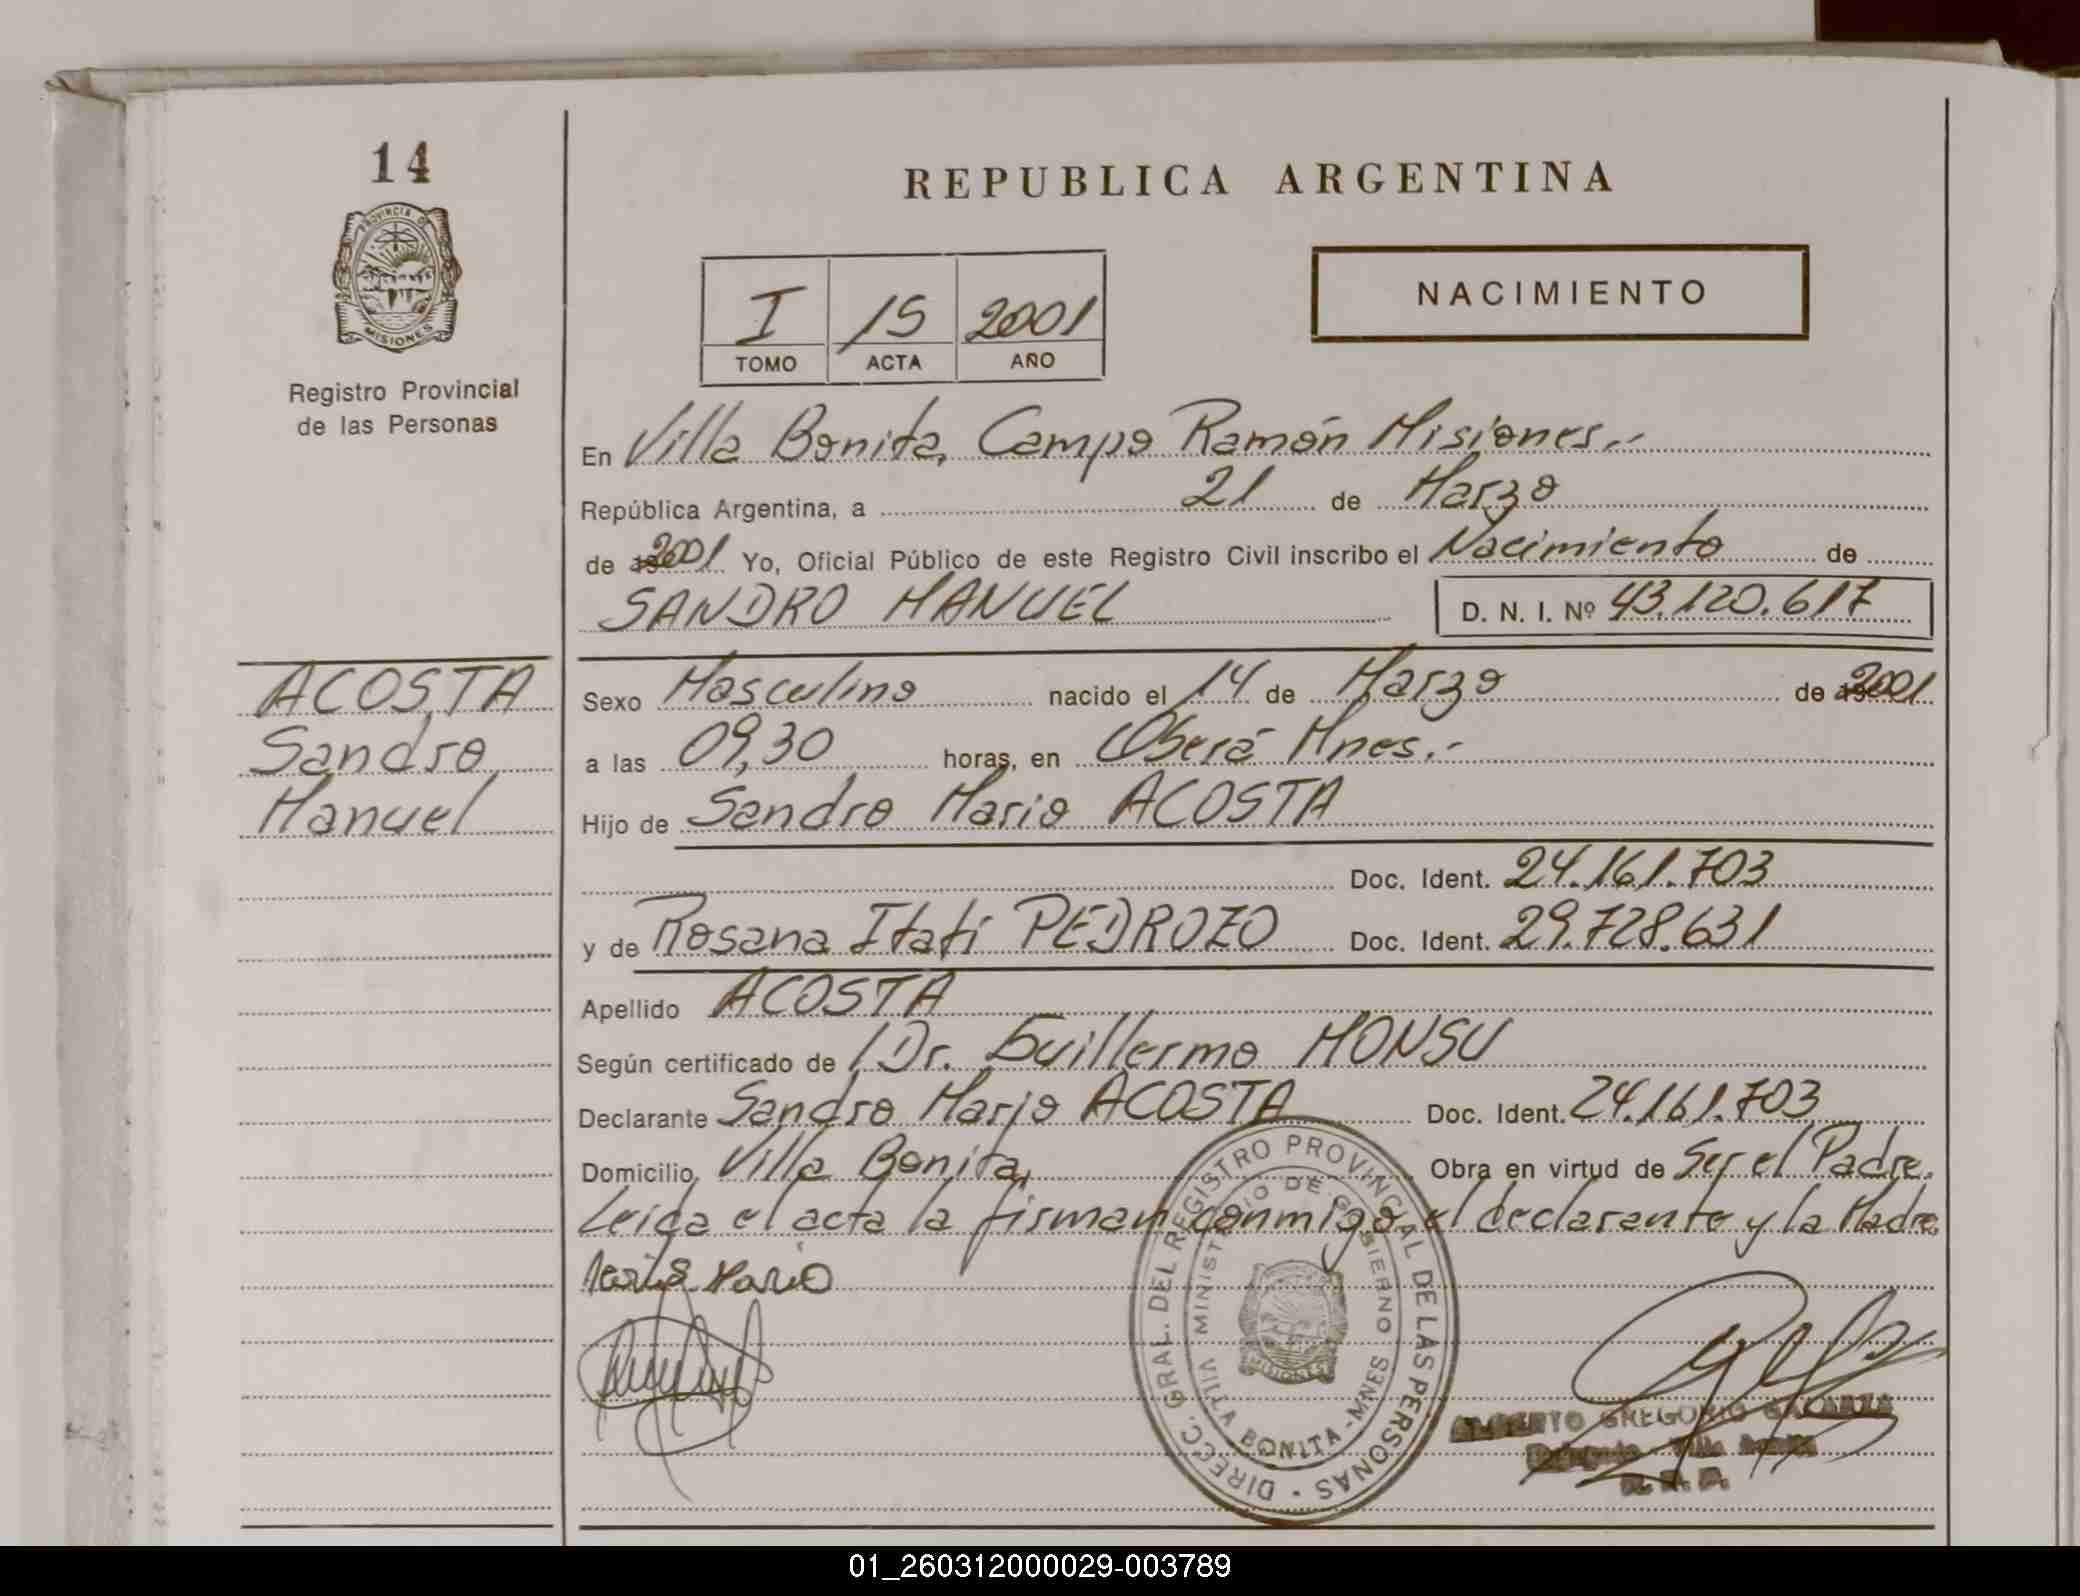 14
PROVINCIA DE
MISIONES
Registro Provincial
de las Personas
REPUBLICA ARGENTINA
I 15 2001
TOMO ACTA AÑO
NACIMIENTO
En Villa Bonita, Campo Ramón Misiones.-
República Argentina, a 21 de Marzo
de 2001 Yo, Oficial Público de este Registro Civil inscribo el Nacimiento de
SANDRO MANUEL D. N. I. Nº 43.120.617
ACOSTA
Sandro
Manuel
Sexo Masculino nacido el 14 de Marzo de 2001
a las 09,30 horas, en Oberá Mnes.-
Hijo de Sandro Mario ACOSTA
Doc. Ident. 24.161.703
y de Rosana Itatí PEDROZO Doc. Ident. 29.728.631
Apellido ACOSTA
Según certificado de Dr. Guillermo MONSU
Declarante Sandro Mario ACOSTA Doc. Ident. 24.161.703
Domicilio Villa Bonita, Obra en virtud de Ser el Padre.
Leída el acta la firman conmigo el declarante y la Madre
Mario
DIRECC. GRAL. DEL REGISTRO PROVINCIAL DE LAS PERSONAS
MINISTERIO DE GOBIERNO
VILLA BONITA - MNES
MISIONES
GREGORIO
Villa Bonita
01_260312000029-003789